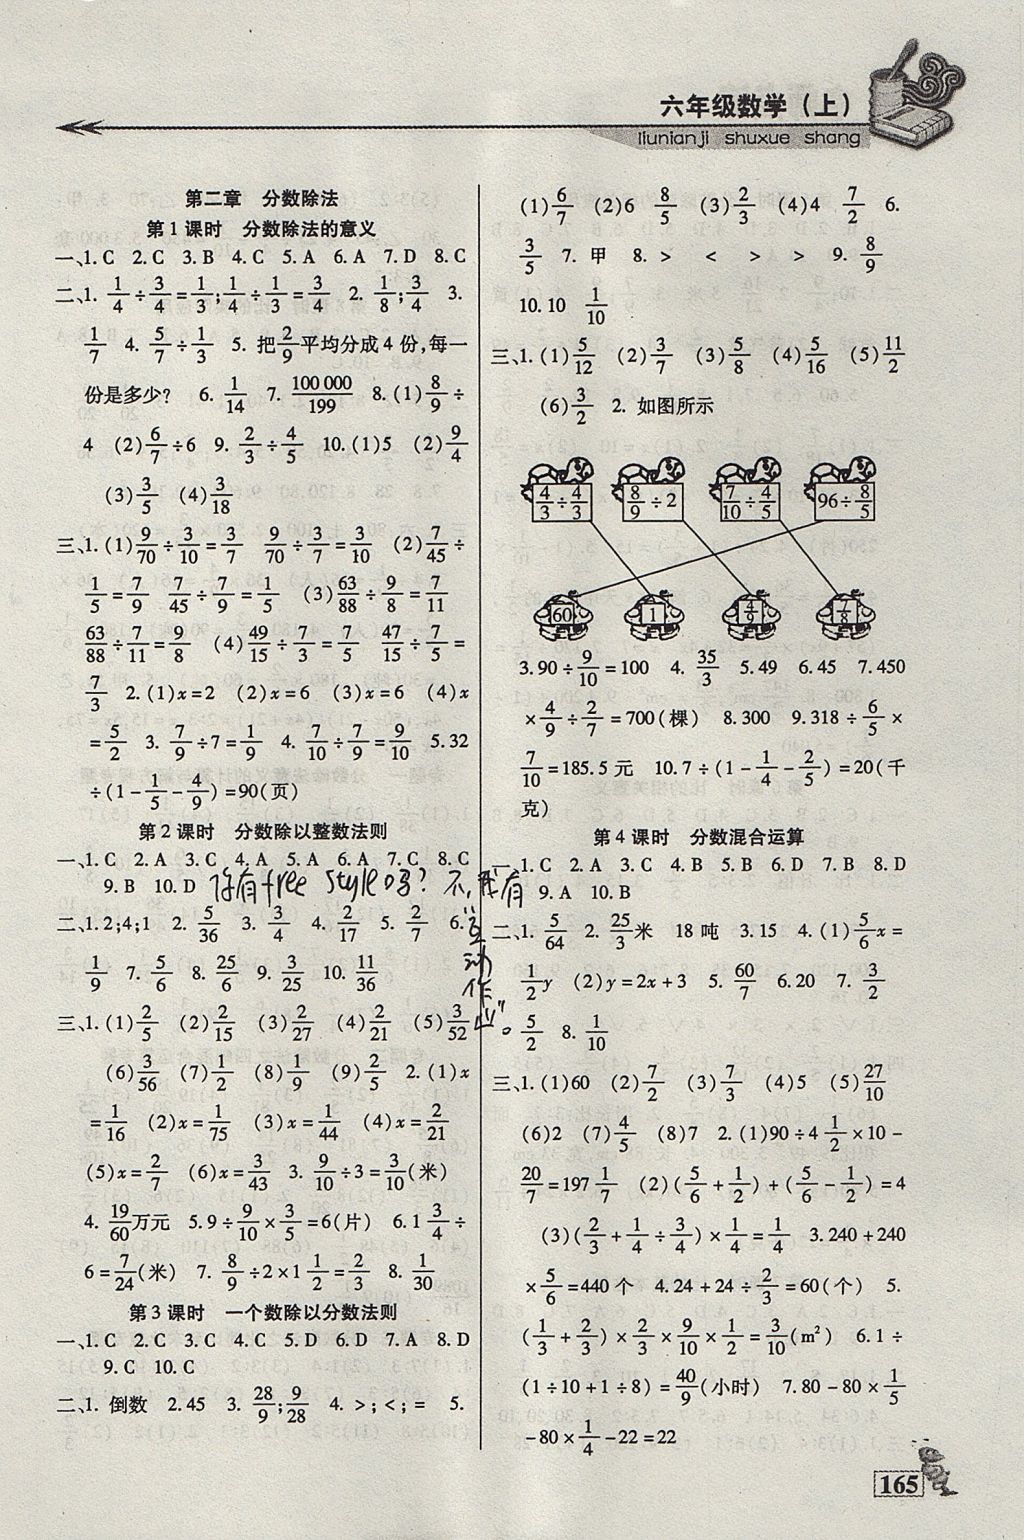 六年级数学（上）
liunianji shuxue shang
第二章 分数除法
第1课时 分数除法的意义
一、1. C 2. C 3. B 4. C 5. A 6. A 7. D 8. C
二、1. 1/4÷3/4=1/3;1/4÷1/3=3/4 2. 1/8;3/4 3.
1/7 4. 5/7÷1/3 5. 把2/9平均分成4份,每一
份是多少? 6. 1/14 7. 100 000/199 8. (1)8/9÷
4 (2)6/7÷6 9. 2/3÷4/5 10. (1)5 (2)9/4
(3)3/5 (4)3/18
三、1. (1)9/70÷3/10=3/7 9/70÷3/7=3/10 (2)7/45÷
1/5=7/9 7/45÷7/9=1/5 (3)63/88÷9/8=7/11
63/88÷7/11=9/8 (4)49/15÷7/3=7/5 47/15÷7/5=
7/3 2. (1)x=2 (2)x=6 (3)x=6 (4)x
=5/2 3. 7/9÷7=1/9 4. 7/10÷7/9=9/10 5. 32
÷(1-1/5-4/9)=90(页)
第2课时 分数除以整数法则
一、1. C 2. A 3. C 4. A 5. A 6. A 7. C 8. C
9. B 10. D 你有free style吗? 不,我有
二、1. 2;4;1 2. 5/36 3. 3/4 4. 2/17 5. 2/7 6.
1/9 7. 5/6 8. 25/6 9. 3/25 10. 11/36
三、1. (1)2/5 (2)2/15 (3)2/27 (4)2/21 (5)3/52
(6)3/56 (7)1/2 (8)1/9 (9)2/5 2. (1)x
=1/16 (2)x=1/75 (3)x=1/44 (4)x=2/21
(5)x=2/7 (6)x=3/43 3. 9/10÷3=3/10(米)
4. 19/60万元 5. 9÷9/10×3/5=6(片) 6. 1 3/4÷
6=7/24(米) 7. 8/9÷2×1 1/2=2/3 8. 1/30
第3课时 一个数除以分数法则
一、1. C 2. C 3. C 4. C 5. D 6. D 7. A 8. D
9. C 10. C
二、1. 倒数 2. 45 3. 28/9;9/28 4. >;<;= 5.
(1)6/7 (2)6 8/5 (3)2/3 (4)4 7/2 6.
3/5 7. 甲 8. > < > > 9. 8/9
10. 10 1/10
三、1. (1)5/12 (2)3/7 (3)5/8 (4)5/16 (5)11/2
(6)3/2 2. 如图所示
4/3÷4/3 8/9÷2 7/10÷4/5 96÷8/5
60 1 4/9 7/8
3. 90÷9/10=100 4. 35/3 5. 49 6. 45 7. 450
×4/9÷2/7=700(棵) 8. 300 9. 318÷6/5×
7/10=185.5元 10. 7÷(1-1/4-2/5)=20(千
克)
第4课时 分数混合运算
一、1. C 2. A 3. C 4. B 5. B 6. D 7. B 8. D
9. A 10. B
二、1. 5/64 2. 25/3米 18吨 3. 15 4. (1)5/6x=
1/2y (2)y=2x+3 5. 60/7 6. 20 7. 3/2
5/2 8. 1/10
三、1. (1)60 (2)7/2 (3)7/3 (4)5 (5)27/10
(6)2 (7)4/5 (8)7 2. (1)90÷4 1/2×10-
20/7=197 1/7 (2)(5/6+1/2)+(5/6-1/2)=4
(3)(2/3+1/4÷3/4)×1/4=1/4 3. 240+240
×5/6=440个 4. 24+24÷2/3=60(个) 5.
(1/3+2/3)×2/3×9/10×1/2=3/10(m²) 6. 1÷
(1÷10+1÷8)=40/9(小时) 7. 80-80×1/5
-80×1/4-22=22
165